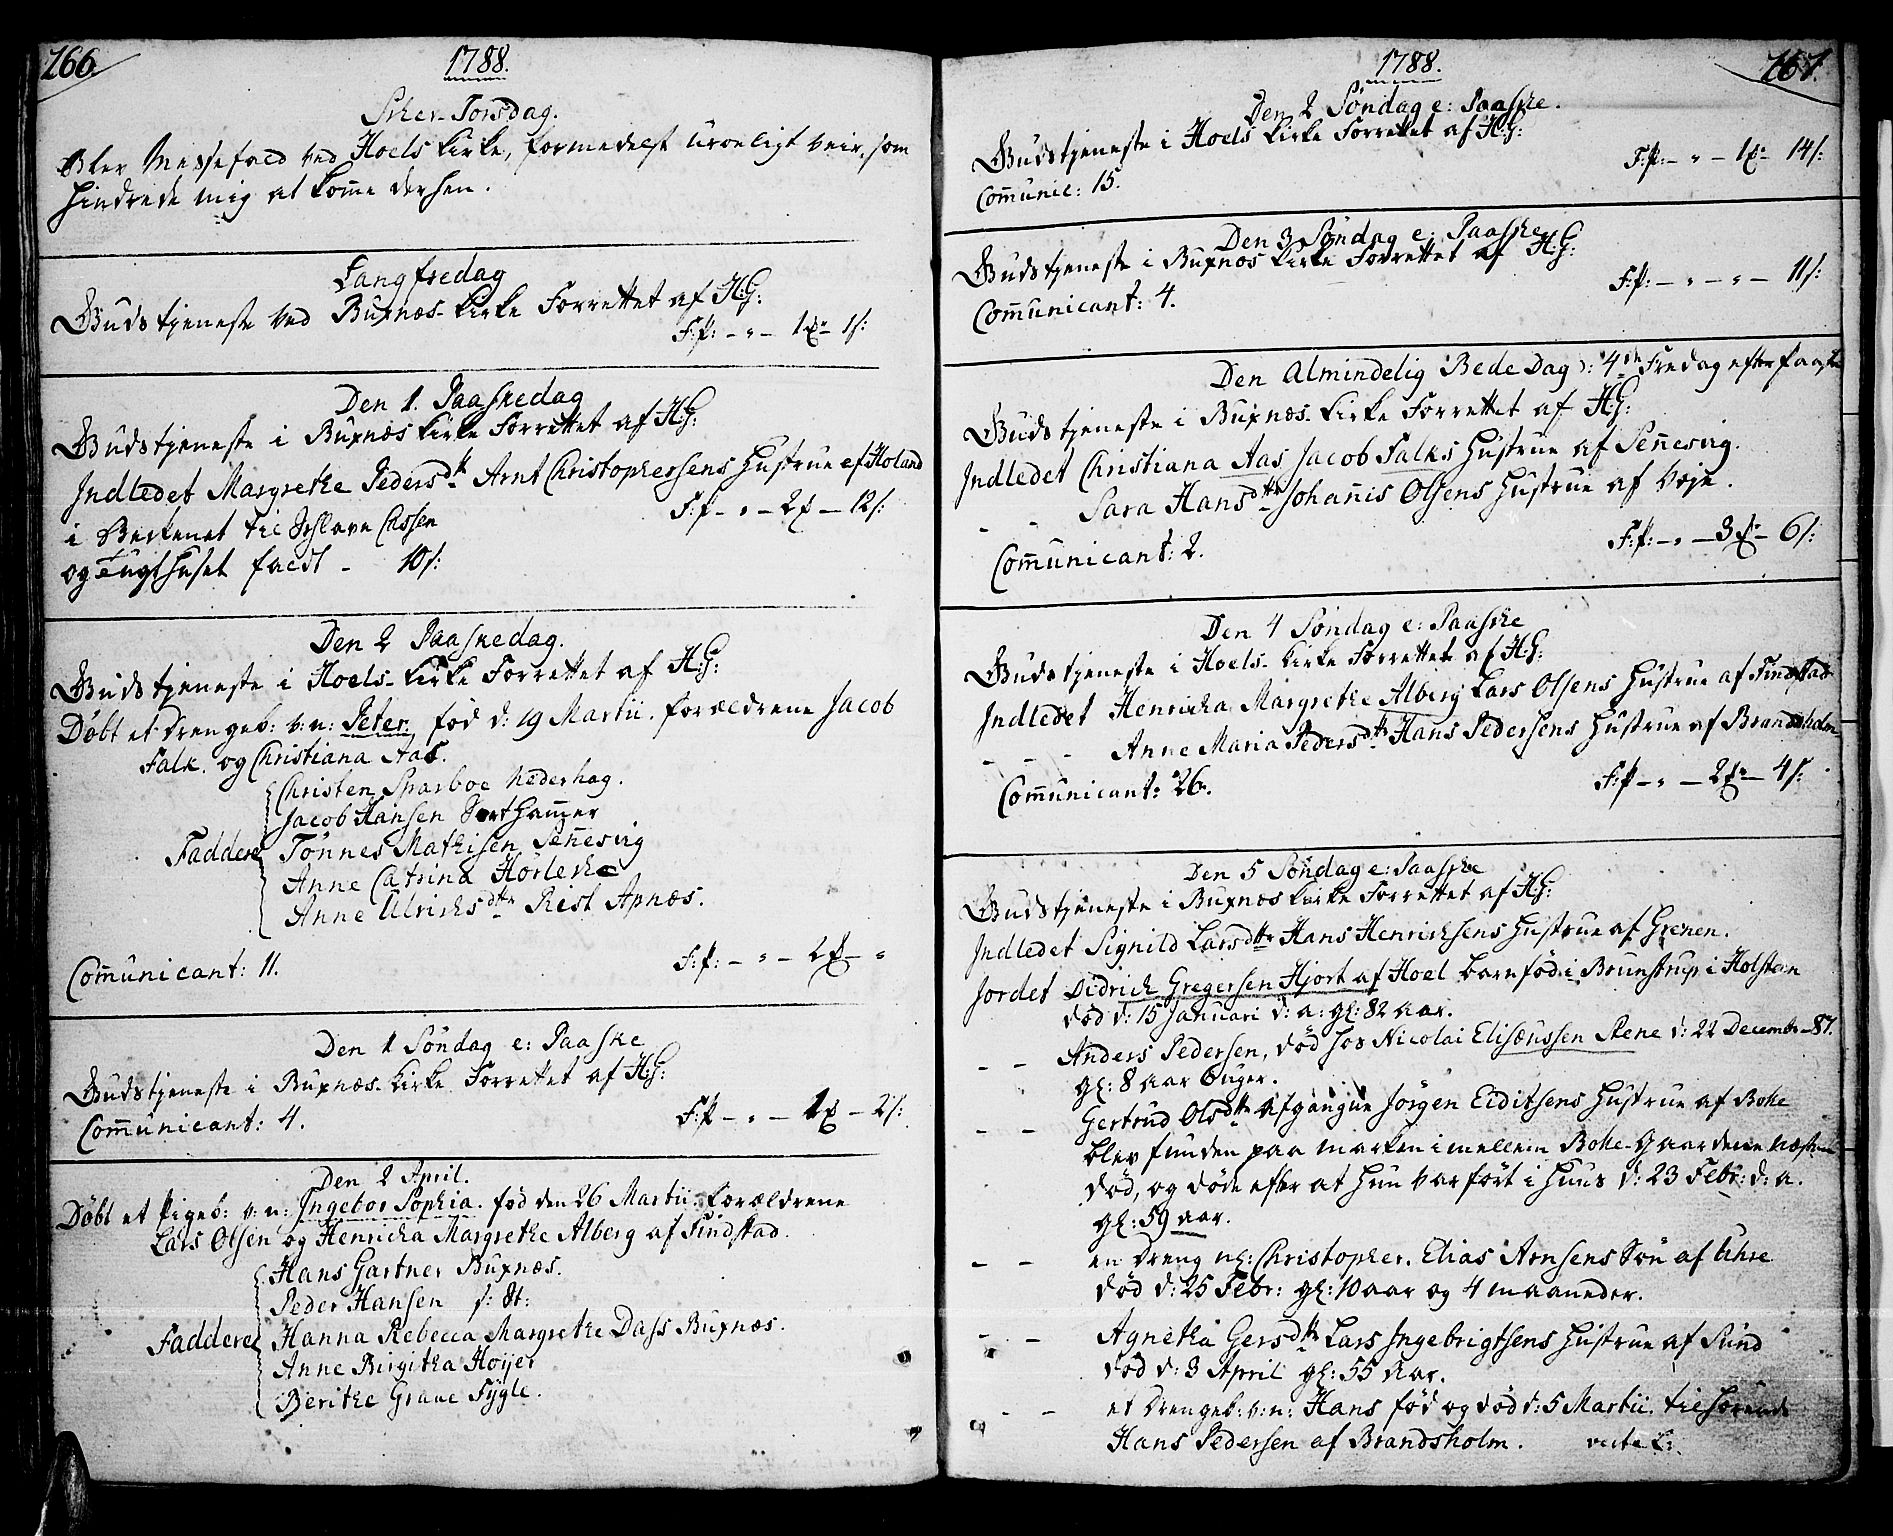 166.
1788.
Skier-Torsdag.
Blev Messefald ved Hoels Kirke, formedelst uroeligt veir, som
hindrede mig at komme derhen.
Langfredag
Gudstjeneste ved Buxnæs-Kirke Forrettet af H:G:
F:P: - " - 1 - 1s:
Den 1. Paaskedag
Gudstjeneste i Buxnæs Kirke Forrettet af H:G:
Indledet Margrethe Pedersdtr Arnt Christophersens Hustrue af Holand
i Bekkenet til Sclave Cassen
F:P - " - 2 - 12s:
og Tugthuset faldt - 10s:
Den 2 Paaskedag.
Gudstjeneste i Hoels-Kirke Forrettet af H:G:
Døbt et drengeb: v: n: Peter, fød d: 19 Martii. forældrene Jacob
Falk. og Christiana Aas.
Christen Sparboe Nederhag.
Jacob Hansen Sorthammer
Faddere Tønnes Mathisen Sennesvig
Anne Catrina
Anne Ulrichsdtr Rist Apnæs.
Communicant: 11.
F:P: - " - 2 - "
Den 1 Søndag e: Paaske
Gudstjeneste i Buxnæs-Kirke Forrettet af H:G:
Communicant: 4.
F:P - " - 1 - 2s:
Den 2 April.
Døbt et Pigeb: v: n: Ingebor Sophia. fød den 26 Martii. Forældrene
Lars Olsen og Henricha Margrethe Alberg af Findstad.
Hans Gartner Buxnæs.
Peder Hansen s: St:
Faddere Hanna Rebecca Margrethe Dass Buxnæs.
Anne Birgitha Høijer
Berithe Graue Fygle.
167.
1788.
Den 2 Søndag e: Paaske.
Gudstjeneste i Hoels Kirke Forrettet af H:G:
F:P: - " - 1 - 14s:
Communic: 15.
Den 3 Søndag e: Paaske
Gudstjeneste i Buxnæs Kirke Forrettet af H:G:
F:P: - " - " - 11s:
Communicant: 4.
Den Almindelig Bede Dag: 4de Fredag efter Paaske
Gudstjeneste i Buxnæs-Kirke Forrettet af H:G:
Indledet Christiana Aas Jacob Falks Hustrue af Sennesvig.
- - Sara Hansdtr Johannis Olsens Hustrue af Voje.
F:P: - " - 3 - 6s:
Communicant: 2.
Den 4 Søndag e: Paaske
Gudstjeneste i Hoels-Kirke Forrettet af H:G:
Indledet Henricha Margrethe Alberg Lars Olsens Hustrue af Findstad
- - - Anne Maria Pedersdtr Hans Pedersens Hustrue af Brandsholm
F:P - " - 2 - 4s:
Communicant: 26.
Den 5 Søndag e: Paaske
Gudstjeneste i Buxnæs Kirke Forrettet af H:G:
Indledet Signild Larsdtr Hans Henrichsens Hustrue af Grenen.
Jordet Didrich Gregersen Hjort af Hoel barnfød i Brunstrup i Holsteen
død d: 15 Januari d: a: gl: 82 aar.
- - Anders Pedersen, død hos Nicolai Elisæussen Stene d: 22 Decembr-87.
gl: 8 aar 6 uger.
- - Gertrud Olsdtr Afgangne Jørgen Eiditsens Hustrue af Bolle
blev funden paa marken imellem Bolle-Gaardene næsten
død, og døde efter at hun var ført i Huus d: 23 Febr: d: a.
gl: 59 aar.
- - en Dreng nl: Christopher. Elias Arnsens Søn af Uhre
død d: 25 Febr: gl: 10 aar og 4 maaneder.
- - Agnetha Gersdtr Lars Ingebrigtsens Hustrue af Sund
død d: 3 April gl: 55 Aar.
- - et Drengeb: v: n: Hans fød og død d: 5 Martii. tilhørende
Hans Pedersen af Brandsholm.